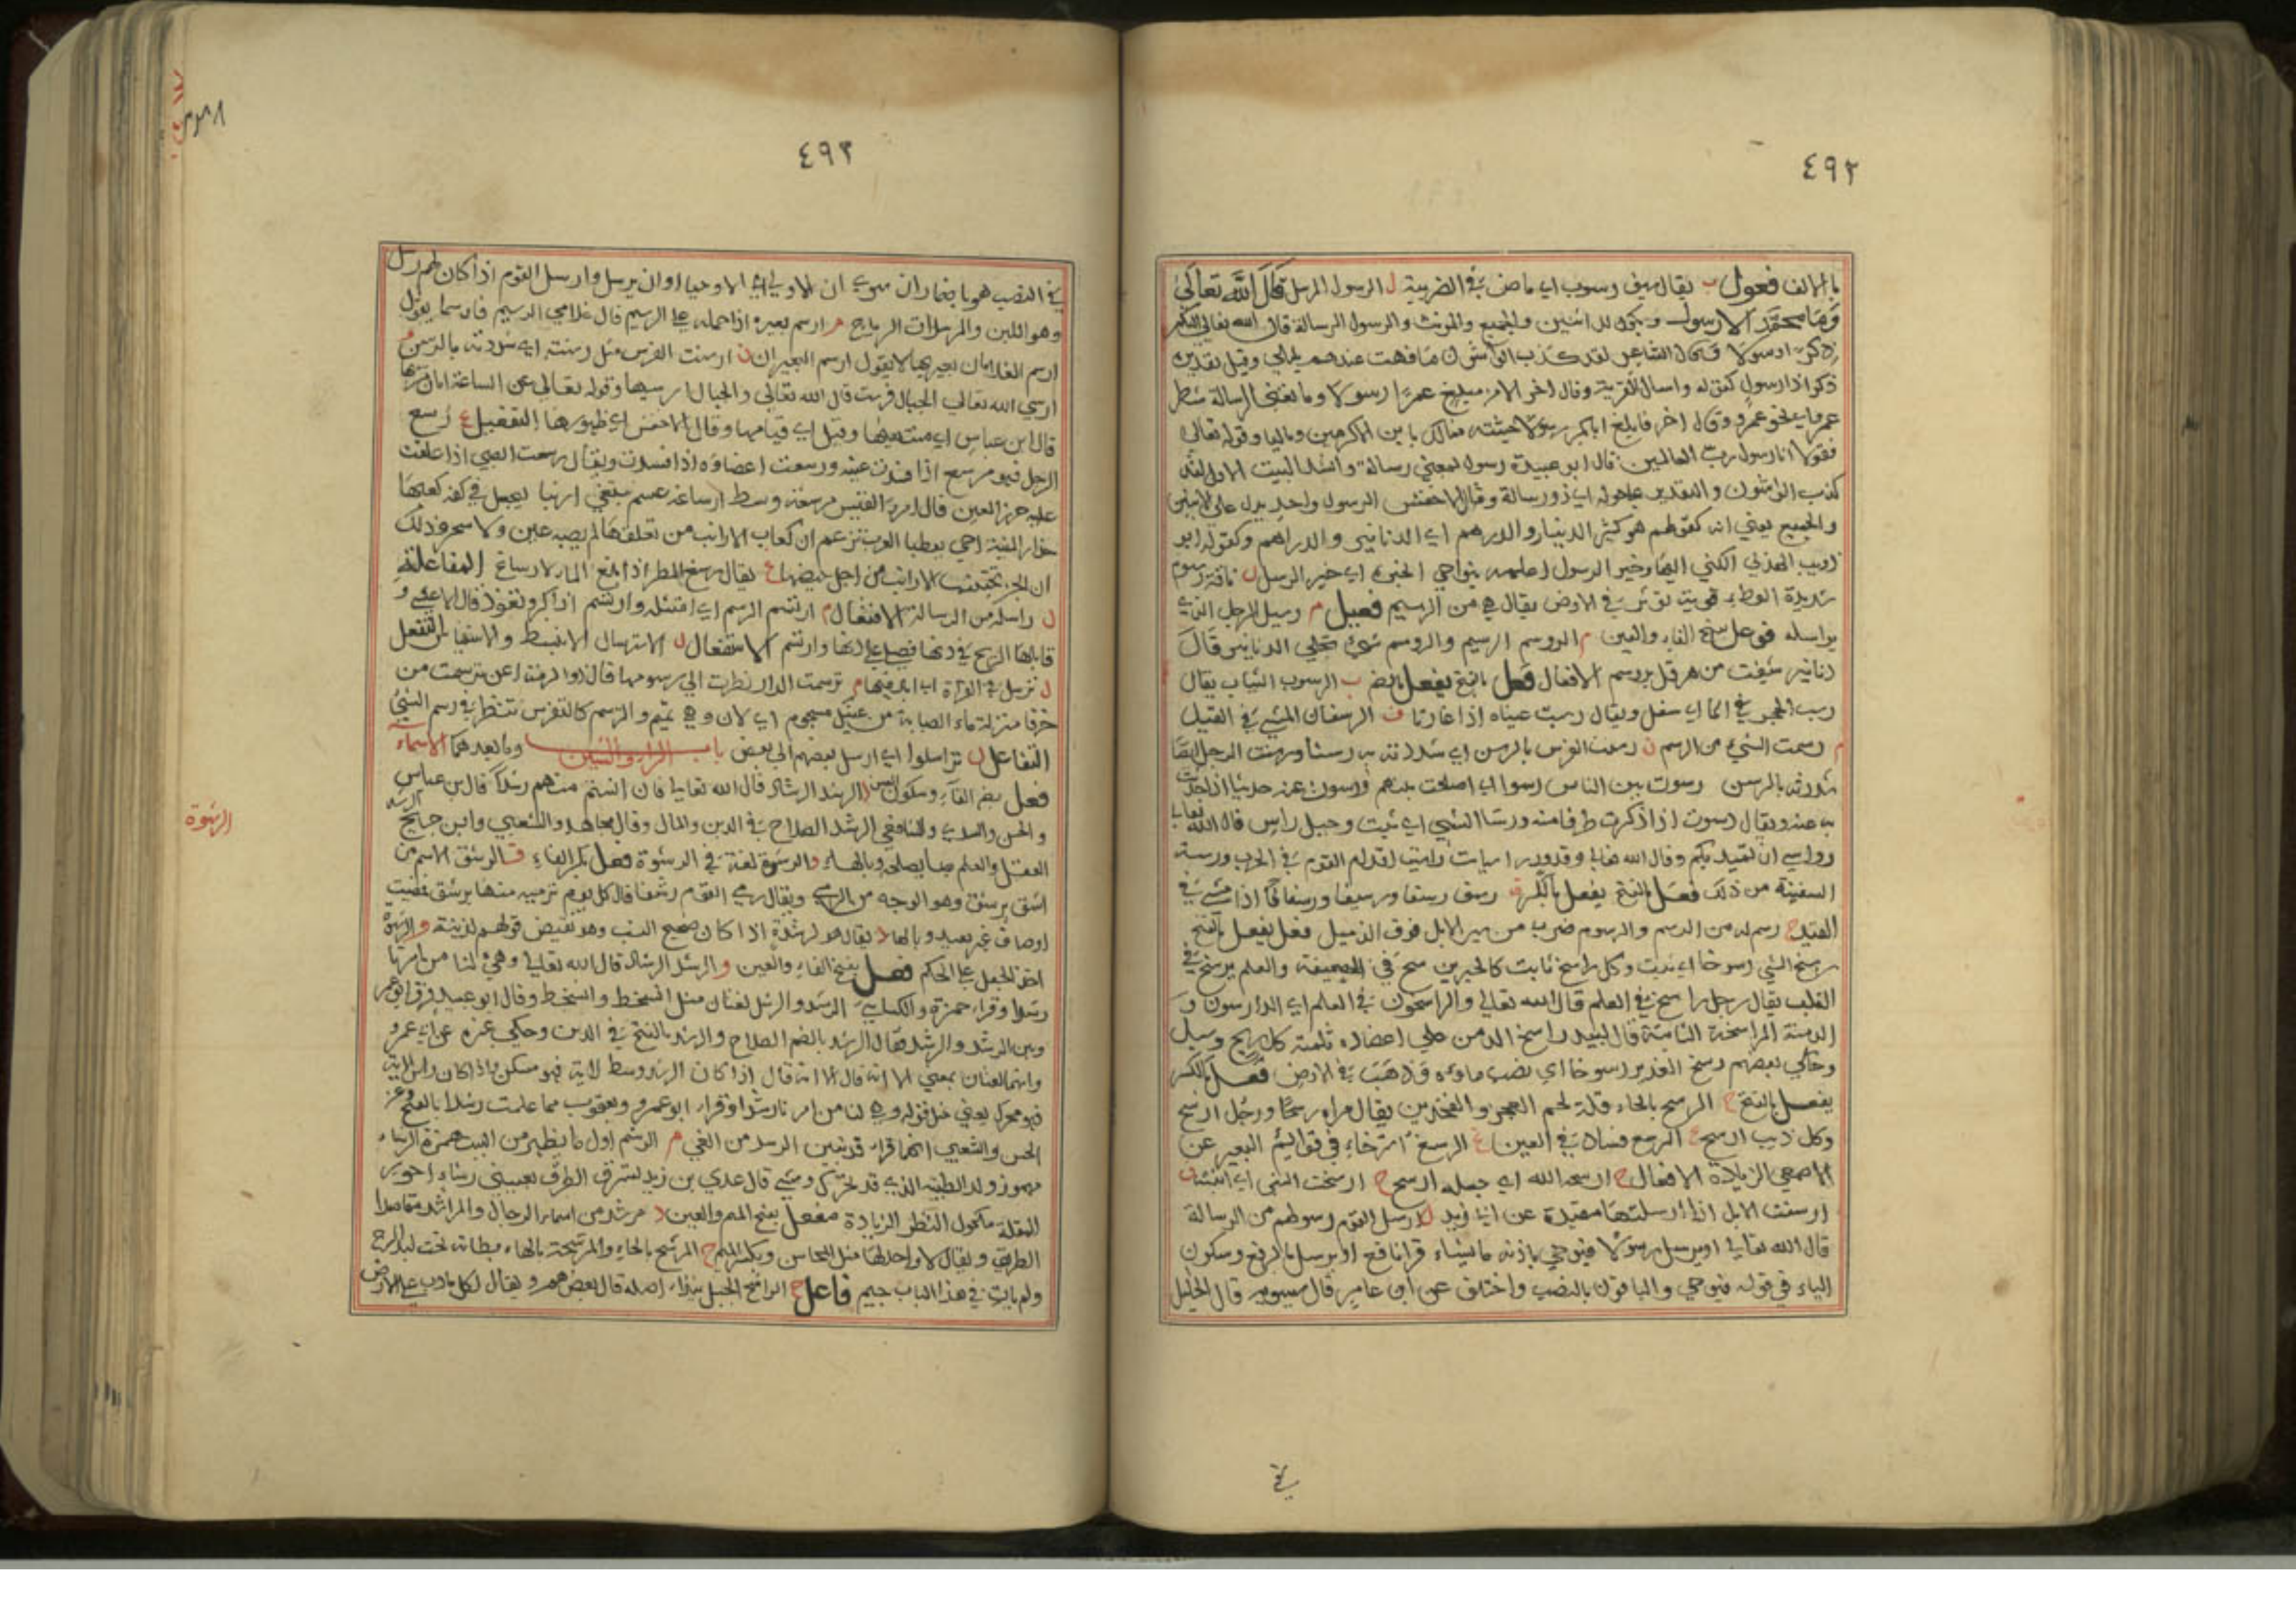 ٤٩٢
بالالف فعول ب يقال سيف رسوب اي ماض في الضريبة ل الرسول المرسل قال الله تعالى
وما محمد الا رسول ويكون للاثنين والجميع والمونث والرسول الرسالة قال الله تعالى
ارسولا قال الشاعر لقد كذب الواشون ما فهت عندهم بليلى وقيل تقديره
ذكرا ذا رسول كقوله واسال القرية وقال اخر الا من مبلغ عمرا رسولا وما تغني الرسالة شطر
عمرو اي نحو عمرو وقال اخر فابلغ ابابكر رسولا يا بن الاكرمين وماليا وقوله تعالى
فقولا انا رسول رب العالمين قال ابو عبيدة رسول بمعنى رسالة وانشد البيت الاول لقد
كذب الواشون والتقدير عليه اي ذو رسالة وقال الاخفش الرسول واحد يدل على الاثنين
والجميع يعني انه كقولهم هو كثير الدينار والدرهم اي الدنانير والدراهم وكقوله ابو
ذويب الهذلي الكني اليها وخير الرسول اعلمهم بنواحي الخبر اي خير الرسل ل ناقة رسوم
شديدة الوطء توثر في الارض يقال هي من الرسيم فعيل م رسيل الرجل الذي
يراسله فوعل بفتح الفاء والعين م الروسم الرسيم والروسم شيء تجلى الدنانير قال
دنانير شيفت من هرقل بروسم الافعال فعل بالفتح يفعل بالضم ب الرسوب الثياب يقال
رسب الحجر في الماء اي سفل ويقال رسبت عيناه اذا غارتا ف الرسفان المشي في القيد
م رسمت الشيء من الرسم ن رسنت الفرس بالرسن اي شددته به رسنا ورسنت الرجل ايضا
شددته بالرسن رسوت بين الناس رسوا اي اصلحت بينهم ورسوت عنه حديثا اذا حدثت
به عنه ويقال رسوت اذا ذكرت طرفا منه ورسا الشيء اي ثبت وجبل راس قال الله تعالى
رواسي ان تميد بكم وقال الله تعالى وقدور راسيات راسيت لقدام القوم في الحرب ورست
السفينة من ذلك فعل بالفتح يفعل بالكسر ف رسف رسفا ورسيفا ورسفانا اذا مشى في
القيد م رسم له من الرسم والرسوم ضرب من سير الابل فوق الذميل فعل يفعل بالفتح
رسخ الشيء رسوخا اي ثبت وكل راسخ ثابت كالحبر يرسخ في الصحيفة والعلم يرسخ في
القلب يقال رجل راسخ في العلم قال الله تعالى والراسخون في العلم اي الدارسون و
الدمنة الراسخة الثابتة قال لبيد راسخ الدمن على اعضاده ثلمته كل ريح وسيل
وحكى بعضهم رسخ الغدير رسوخا اي نضب ماوه وذهب في الارض فعل بالكسر
يفعل بالفتح ح الرسح بالحاء قلة لحم العجز والفخذين يقال مراة رسحا ورجل ارسح
وكل ذيب ارسح ع الرسع فساد في العين غ الرسغ استرخاء في قوائم البعير عن
الاصمعي الزيادة الافعال ح ارسحه الله اي جعله ارسح خ ارسخت الشيء اي اثبته ن
ارسنت الابل اذا ارسلتها مقيدة عن ابي زيد ل ارسل القوم رسولهم من الرسالة
قال الله تعالى او يرسل رسولا فيوحي باذنه ما يشاء قرا نافع او يرسل بالرفع وسكون
الياء في قوله فيوحي والباقون بالنصب واختلف عن ابن عامر قال سيبويه قال الخليل
في
٤٩٣
في النصب هو باضمار ان سوى ان الاولى اي الا وحيا او ان يرسل وارسل القوم اذا كان لهم رسل
وهو اللبن والمرسلات الرياح م ارسم بعيره اذا حمله على الرسيم قال غلامي الرسيم فارسما يقول
ارسم الغلامان بعيريهما لا يقول ارسم البعيران ن ارسنت الفرس مثل رسنته اي شددته بالرسن و
ارسى الله تعالى الجبال فرست قال الله تعالى والجبال ارسيها وقوله تعالى عن الساعة ايان مرسيها
قال ابن عباس اي منتهيها وقيل اي قيامها وقال الاخفش اي ظهورها التفعيل ع رسع
الرجل فهو مرسع اذا فسدت عينه ورسعت اعضاؤه اذا فسدت ويقال رسعت الصبي اذا علقت
عليه حرز العين قال امرؤ القيس مرسعة وسط ارساغه عسم يبتغي ارنبا ليجعل في كفه كعبها
حذار المنية ان يعطبا العرب تزعم ان كعاب الارانب من تعلقها لم يصبه عين ولا سحر وذلك
ان الجن تجتنب الارانب من اجل حيضها غ يقال رسغ المطر اذا بلغ الماء الارساغ المفاعلة
ل راسله من الرسالة الافتعال م ارتسم الرسم اي امتثله وارتسم اذا كبر وتعوذ قال الاعشى و
قابلها الريح في دنها فصلى على دنها وارتسم الاستفعال ل الاسترسال الانبساط والاستيناس التفعل
ل ترسل في القراة اي اتئد فيها م ترسمت الدار نظرت الى رسومها قال ذو الرمة اعن ترسمت من
خرقا منزلة ماء الصبابة من عينيك مسجوم اي لان وهي تميم والترسم كالتفرس تنظر في رسم الشيء
التفاعل ل تراسلوا اي ارسل بعضهم الى بعض باب الراء والشين وما بعدهما الاسماء
فعل بضم الفاء وسكون العين د الرشد الرشاد قال الله تعالى فان انستم منهم رشدا قال ابن عباس
والحسن والسدي والشافعي الرشد الصلاح في الدين والمال وقال مجاهد والشعبي وابن جريج الرشد
العقل والعلم بما يصلحه وبالهاء و الرشوة لغة في الرشوة فعل بكسر الفاء ق الرشق الاسم من
رشق يرشق وهو الوجه من الرمي ويقال رمى القوم رشقا قال كل يوم ترميه منها برشق فمصيب
اوصاف غير بعيد وبالهاء د يقال هو لرشدة اذا كان صحيح النسب وهو نقيض قولهم لزنية و الرشوة
اخذ الجعل على الحكم فعل بفتح الفاء والعين د الرشد الرشاد قال الله تعالى وهيئ لنا من امرنا
رشدا وقرا حمزة والكسائي الرشد والرشد لغتان مثل السخط والسخط وقال ابو عبيد فرق ابو عمرو
وبين الرشد والرشد فقال الرشد بالضم الصلاح والرشد بالفتح في الدين وحكى غيره عن ابي عمرو
وانهما لغتان بمعنى الا انه قال الا انه قال اذا كان الرشد وسط الاية فهو مسكن واذا كان راس الاية
فهو محرك يعني مثل قوله وهيئ لنا من امرنا رشدا وقراء ابو عمرو ويعقوب مما علمت رشدا بالفتح وعن
الحسن والشعبي انهما قراء قد تبين الرشد من الغي م الرشم اول ما يظهر من النبت همزة الرشاء
مهموز ولد الظبية الذي قد تحرك ومشى قال عدي بن زيد تسترق الطرف بعيني رشاء احوير
المقلة مكحول النظر الزيادة مفعل بفتح الميم والعين د مرشد من اسماء الرجال والمراشد مقاصد
الطريق ويقال لا واحد لها مثل المحاسن وبكسر الميم ح المرشح بالحاء والمرشحة بالهاء بطانة تحت لبد السرج
ولم يات في هذا الباب جيم فاعل ح الراشح الجبل يندى اصله قال بعضهم ويقال لكل ما دب على الارض
الرشوة